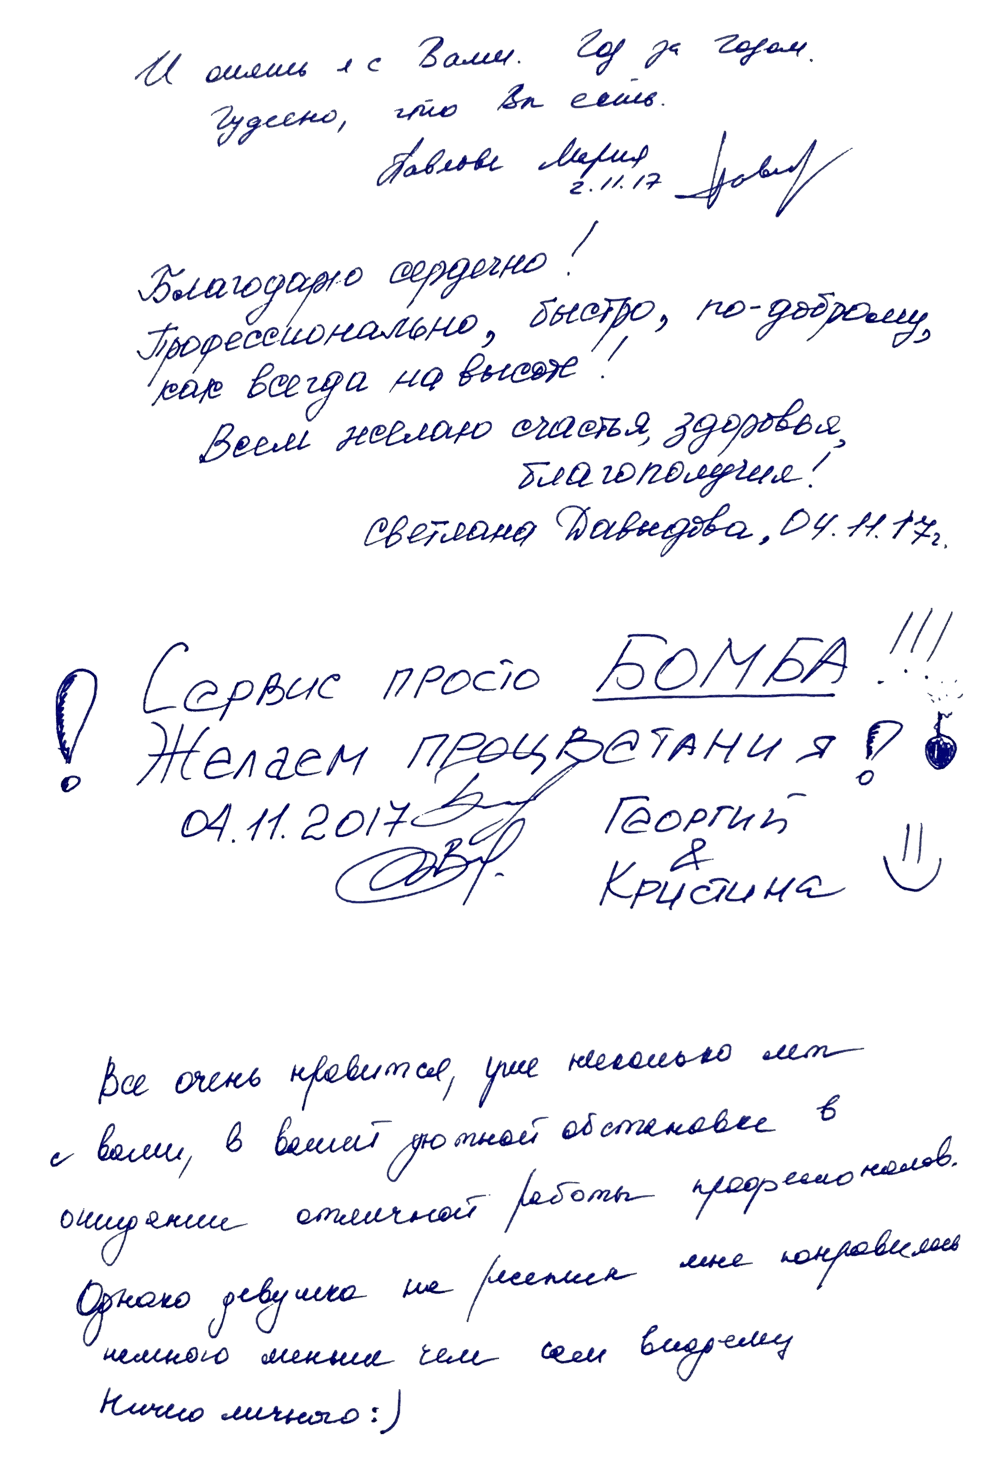 И опять я с Вами. Год за годом.
Чудесно, что Вы есть.
Павлова Мария
2.11.17
Благодарю сердечно!
Профессионально, быстро, по-доброму,
как всегда на высоте!
Всем желаю счастья, здоровья,
благополучия!
Светлана Давыдова, 04.11.17г.
Сервис просто БОМБА!!!
Желаем процветания!
04.11.2017 Георгий
&
Кристина
Все очень нравится, уже несколько лет
с вами, в вашей уютной обстановке в
ожидании отличной работы профессионалов.
Однако девушка на ресепшн мне понравилась
немного меньше чем сам
Ничего личного :)